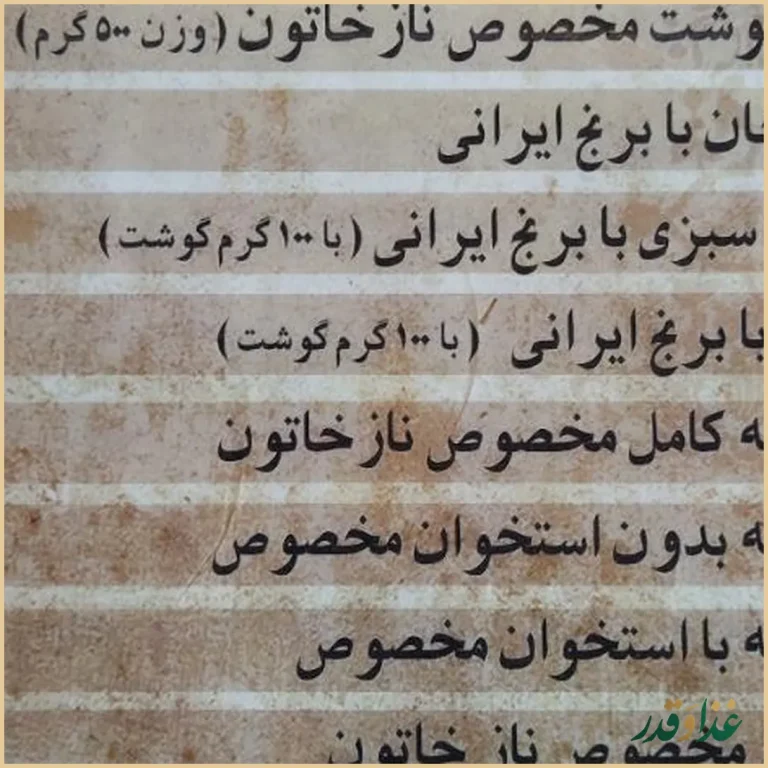 مخصوص ناز خاتون (وزن ۵۰۰ گرم)
با برنج ایرانی
سبزی با برنج ایرانی (با ۱۰۰ گرم گوشت)
با برنج ایرانی (با ۱۰۰ گرم گوشت)
کامل مخصوص ناز خاتون
بدون استخوان مخصوص
با استخوان مخصوص
مخصوص ناز خاتون
غذا و قدر